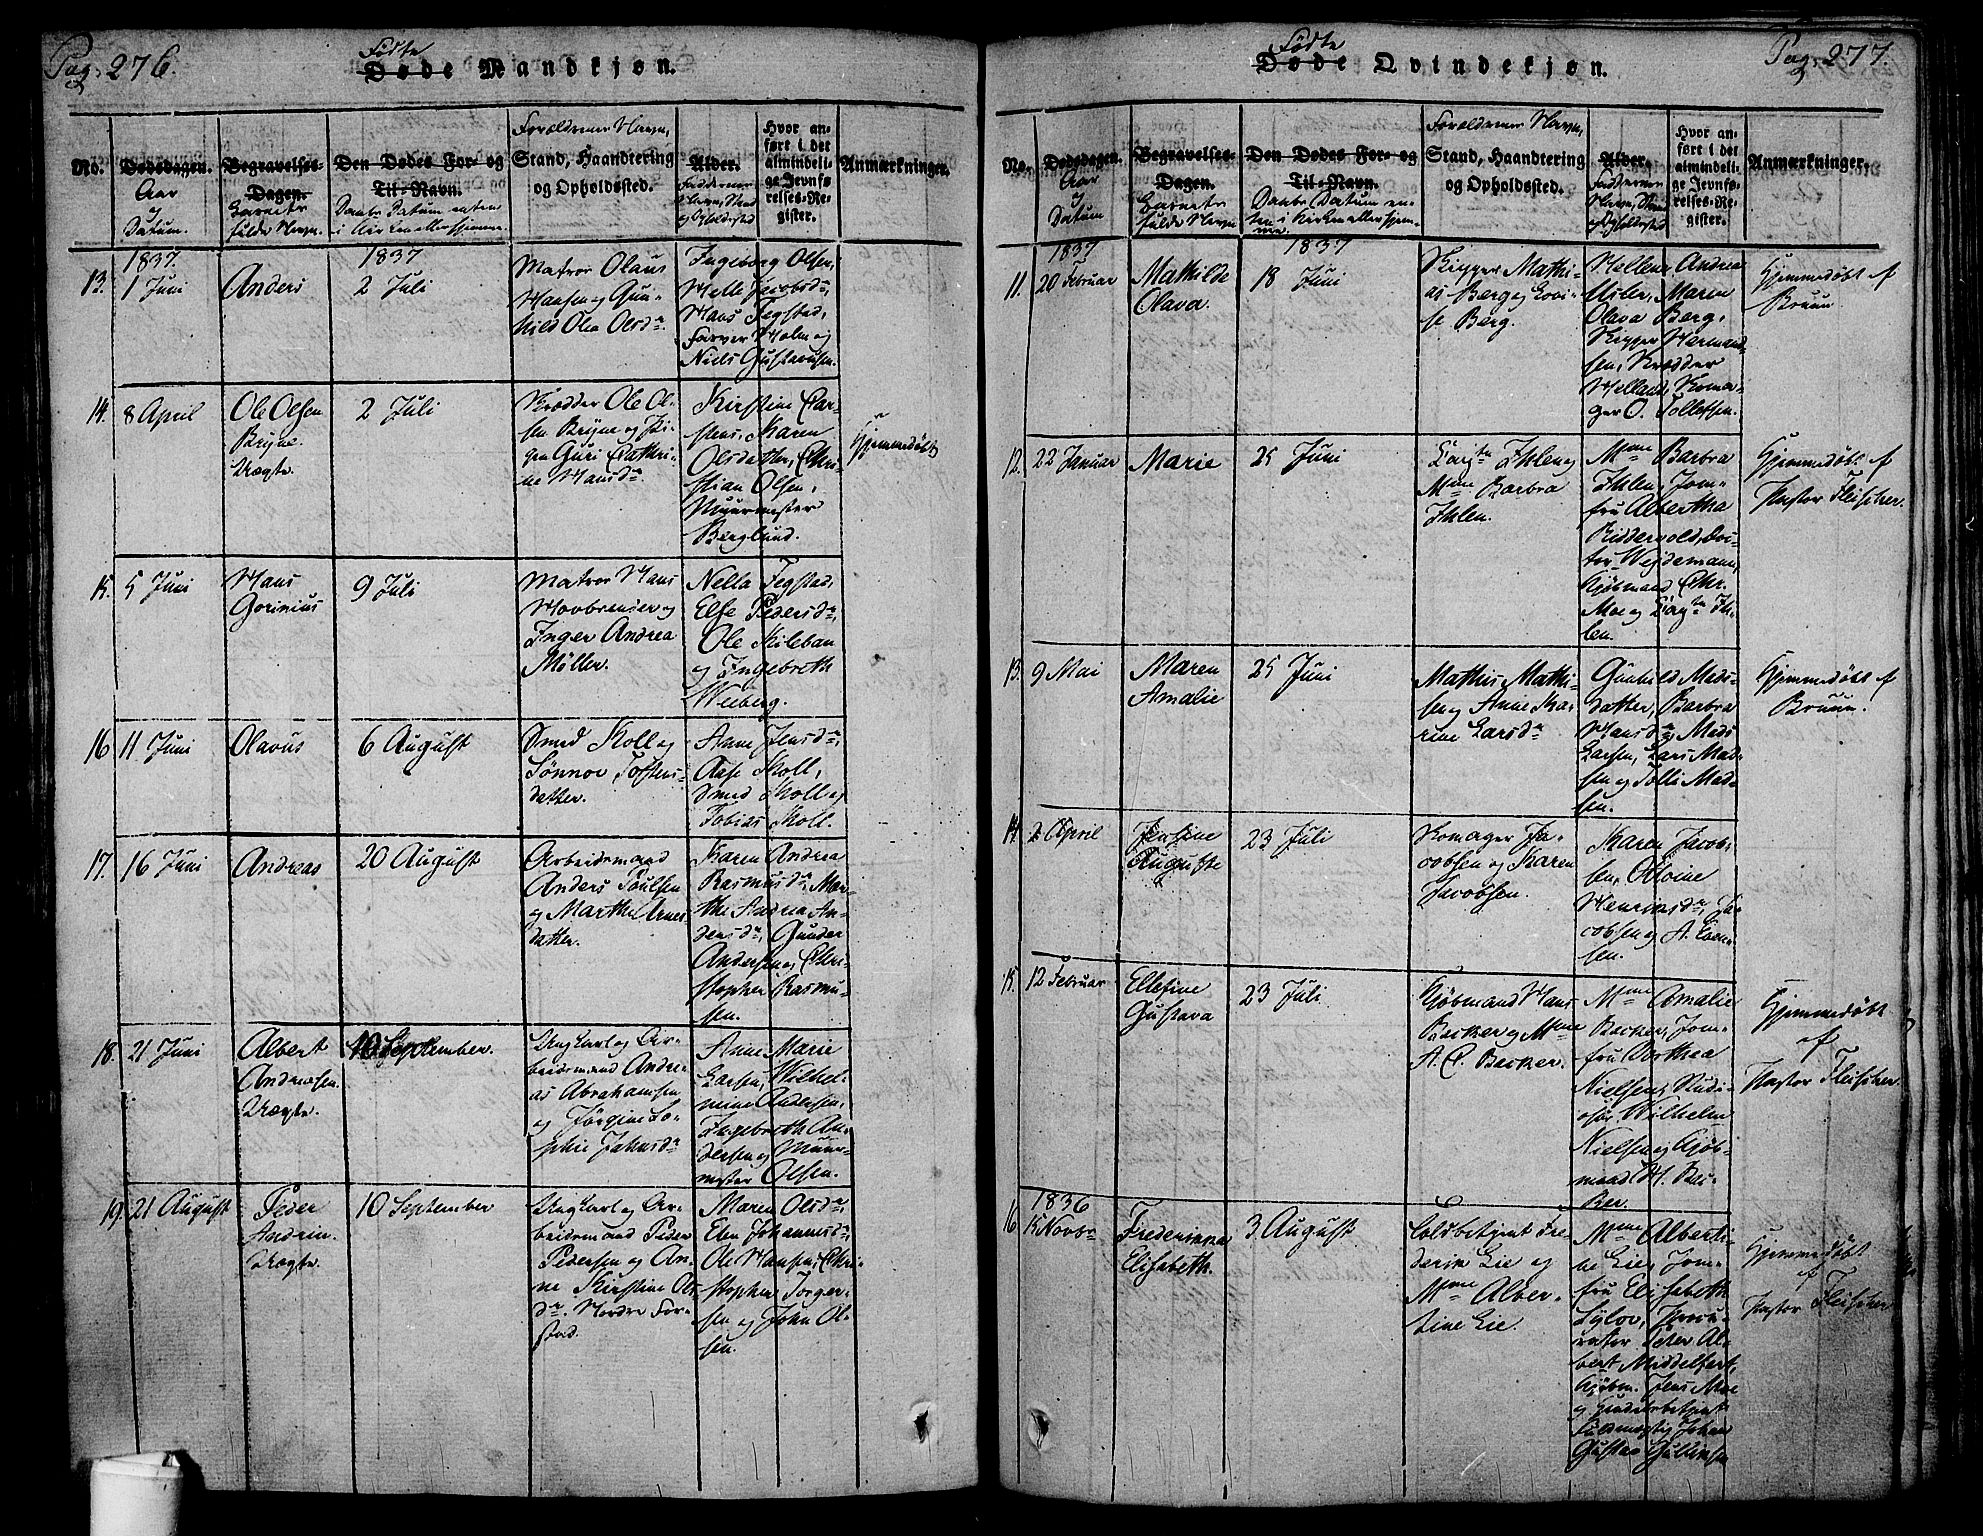 Pag. 276.
Fødte
Døde Mandkjøn.
No.
Dødsdagen.
Aar
og
Datum.
Begravelses-
Dagen.
Barnets
fulde Navn.
Den Dødes For- og
Til-Navn.
Daabs Datum enten
i Kirken eller hjemme.
Forældrenes Navn,
Stand, Haandtering
og Opholdssted.
Alder.
Faddernes
Navn, Stand
og Opholdssted
Hvor an-
ført i det
almindeli-
ge Jevnfø-
relses-Re-
gister.
Anmærkninger.
13.
1837.
1 Juni
Anders
1837
2 Juli
Matros Olaus
Hansen og Gun-
hild Olea Olsdr.
Ingeborg Olsen,
Helle Jacobsdr,
Hans Tegstad,
Farver Holm og
Niels Gustavsen.
14.
8 April
Ole Olsen
Bryne
Uægte.
2 Juli
Skrædder Ole Ol-
sen Bryne og Pi-
gen Guri Cathri-
ne Hansdr.
Kirstine Car-
stens, Karen
Olsdatter, Chri-
stian Olsen,
Muurmester
Berglund.
Hjemmedøbt
15.
5 Juni
Hans
Gorinius
9 Juli
Matros Hans
Hovbrender og
Inger Andrea
Møller.
Nella Tegstad,
Else Pedersdr,
Ole Kileban
og Ingebreth
Weeberg.
16
11 Juni
Olavus
6 August
Smed Koll og
Sønnov Tostens-
datter.
Anne Jensdr,
Aase Koll,
Smed Koll og
Tobias Koll.
17.
16 Juni
Andreas
20 August
Arbeidsmand
Anders Poulsen
og Marthe Arnes
datter.
Karen Andrea
Rasmusdr, Mar-
the Andrea An-
dersdr, Gunder
Andersen, Chri-
stopher Rasmu-
sen.
18.
21 Juni
Albert
Andreasen.
Uægte.
10 September.
Ungkarl og Ar-
beidsmand Andre-
as Abrahamsen
og Jørgine So-
phie Jahnsdr
Anne Marie
Larsen, Wilhel-
mine Andersen,
Ingebreth An-
dersen og Muur-
mester Olsen.
19.
21 August
Peder
Andrin
Uægte.
10 September
Ungkarl og Ar-
beidsmand Peder
Pedersen og An-
ne Kirstine Ols
dr. Nordre For-
stad.
Maren Olsdr,
Elen Johannesdr
Ole Hansen, Chri-
stopher Torger-
sen og John Ol-
sen.
Pag. 277.
Fødte
Døde Qvindekjøn.
No.
Dødsdagen.
Aar
og
Datum
Begravelses-
Dagen.
Barnets
fulde Navn
Den Dødes For- og
Til-Navn.
Daabs Datum en-
ten i Kirken eller hjem-
me.
Forældrenes Navn,
Stand, Haandtering
og Opholdssted.
Alder.
Faddernes
Navn, Stand
og Opholdssted
Hvor an-
ført i det
almindeli-
ge Jevnfø-
relses-Re-
gister.
Anmærkninger.
11.
1837
20 Februar
Mathilde
Olava.
1837
18 Juni
Skipper Mathi-
as Berg og Lovi-
se Berg.
Hellene Andrea
Maren
Olava Berg,
Skipper Herman-
sen, Skrædder
Helland, Skoma-
ger O. Tollefsen.
Hjemmedøbt af
Bruun.
12.
22 Januar
Marie
25 Juni
Captn Ihlen og
Mme Barbra
Ihlen.
Mme Barbra
Ihlen, Jom-
fru Albertha
Riddervold, Doc-
tor Weidemann,
Kjøbmand Chr.
Moe og Captn Ih-
len.
Hjemmedøbt af
Pastor Fleischer.
13.
9 Mai
Maren
Amalie
25 Juni
Mathis Mathi-
sen og Anne Ka-
rine Larsdr
Gunhild Mads-
datter, Barbra
Hansdr, Mads
Larsen, Lars Mad-
sen og Tolle Mad-
sen.
Hjemmedøbt af
Bruun.
14.
2 April
Jensine
Auguste
23 Juli
Skomager Ja-
cobsen og Karen
Jacobsen.
Karen Jacob-
sen, Oline
Henriksdr, Ja-
cobsen og A. Even-
sen.
15.
12 Februar
Ellesine
Gustava
23 Juli
Kjøbmand Hans
Backer og Mme
A. C. Backer.
Mme Amalie
Backer, Jom-
fru Dorthea
Nielsen, Studi-
osus Wilhelm
Nielsen og Kjøb-
mand H. Bac-
ker.
Hjemmedøbt
af
Pastor Fleischer.
16
1836
15 Novbr
Fredrikka
Elisabeth.
3 August
Toldbetjent Fre-
derik Lie og
Mme Alber-
tine Lie.
Mme Alberti-
ne Lie, Jom-
fru Elisabeth
Sylow, Procu-
rator Peter Al-
bert Middelfart,
Kjøbm. Jens Moe
og
Fuldmægtig Johan
Gustav Gulliksen
Hjemmedøbt
af
Pastor Fleischer